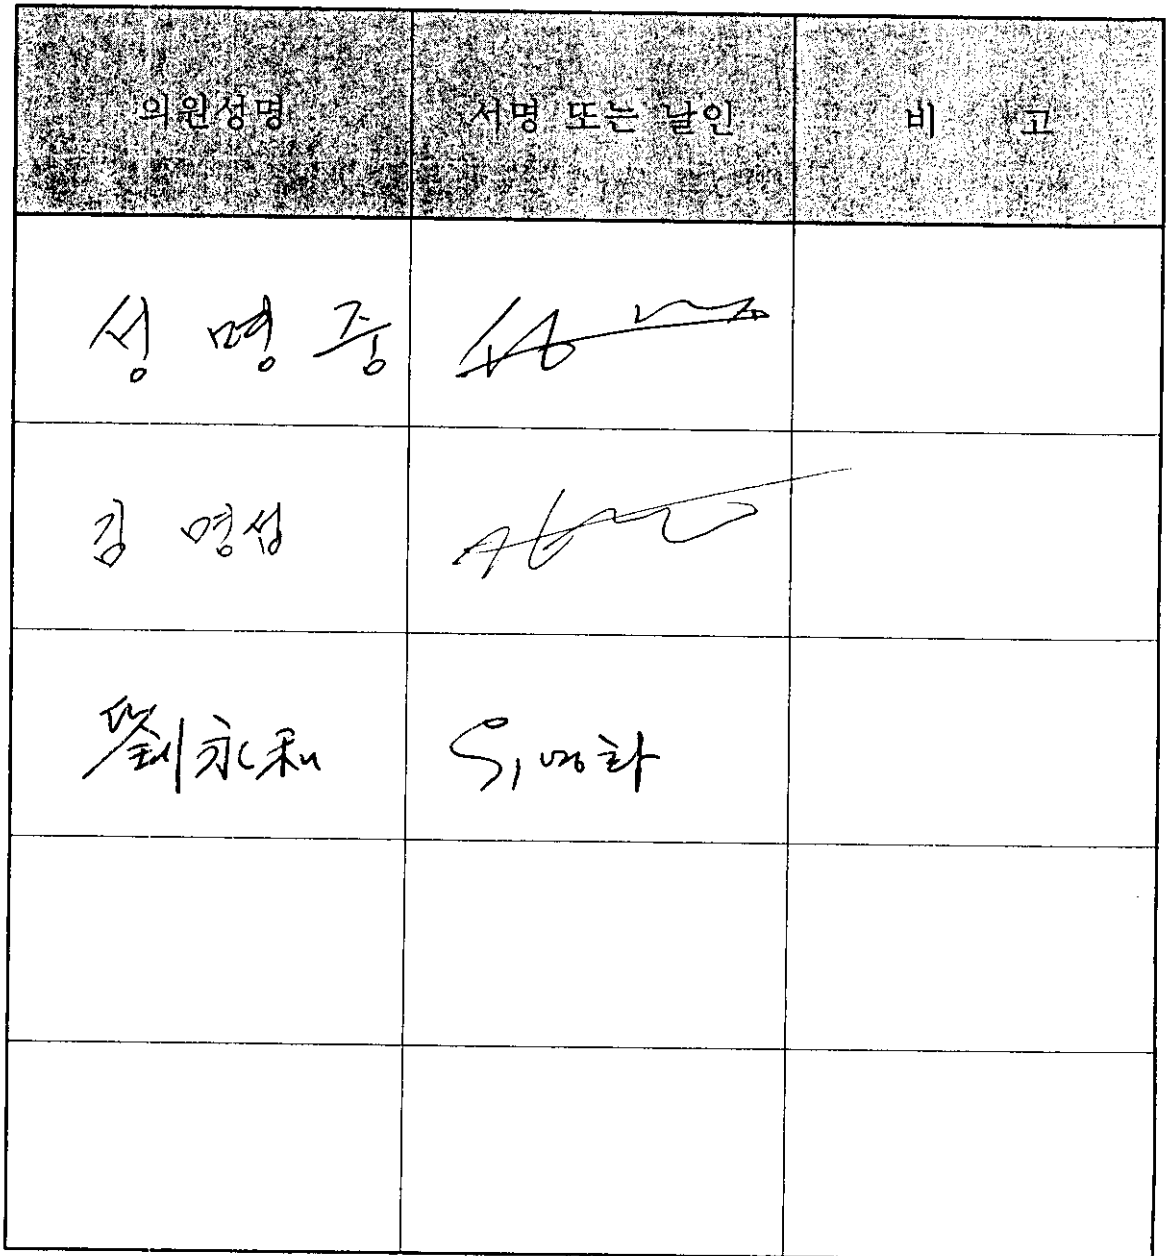 의원성명 서명 또는 날인 비 고
성명중
김명섭
劉永和 유영화